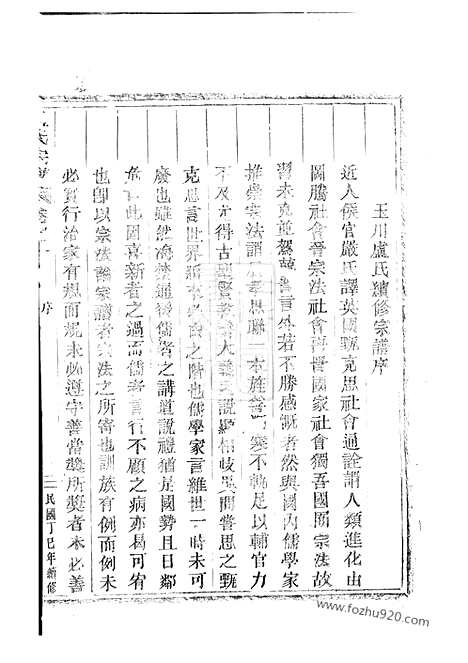 玉川盧氏續修宗譜序
近人侯官嚴氏譯英國甄克思社會通詮謂人類進化由
圖騰社會晉宗法社會再晉國家社會獨吾國囿宗法故
習未克並駕 言外若不勝感慨者然與國內儒學家
推崇宗法謂 一本旌 不軌足以輔官力
不及 得古聖賢 大 說顯相歧異間嘗思之甄
克思言世界 之階也儒學家言維世一時未可
廢也雖然海禁通 儒者之講道說禮猶是國勢且日鄰
於 此因喜新者之過而儒者言行不顧之病亦曷可宥
也即以宗法論宗譜者宗法之所寄也訓族有例而例未
必實行治家有規而規未必遵守善當獎所獎者未必善
序
二
民國丁巳年續修
www.fozhu920.com